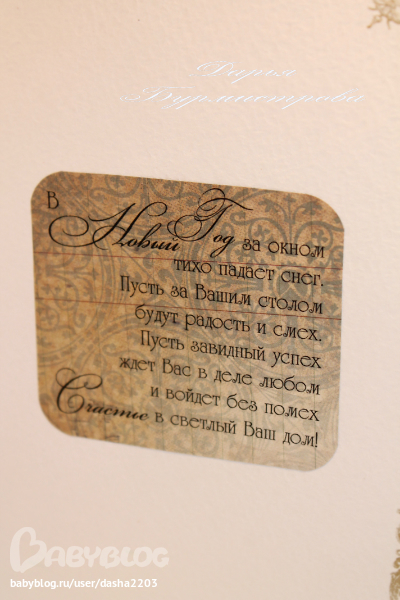 Дарья
Бурмистрова
В
Новый Год за окном
тихо падает снег.
Пусть за Вашим столом
будут радость и смех.
Пусть завидный успех
ждет Вас в деле любом
и войдет без помех
Счастье в светлый Ваш дом!
BABYBLOG
babyblog.ru/user/dasha2203